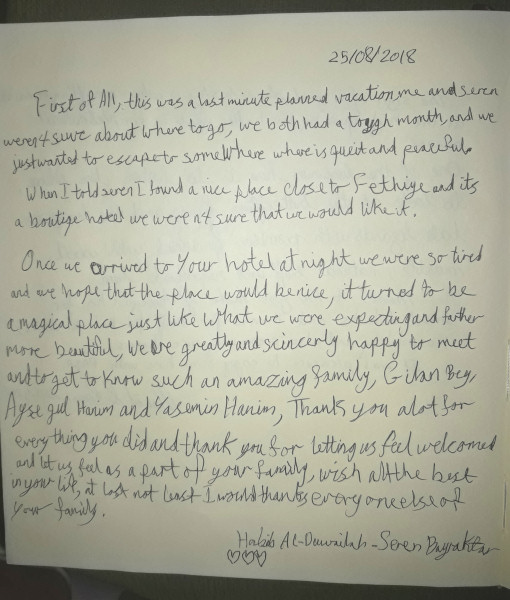 25/08/2018
First of All, this was a last minute planned vacation, me and seren
weren't sure about where to go, we both had a tough month, and we
just wanted to escape to somewhere where is queit and peaceful.
When I told seren I found a nice place close to Fethiye and its
a boutige hotel we weren't sure that we would like it.
Once we arrived to your hotel at night we were so tired
and we hope that the place would be nice, it turned to be
a magical place just like what we were expecting and farther
more beautiful, We are greatly and scincerly happy to meet
and to get to know such an amazing family, Gilan Bey,
Ayse gul Hanim and Yasemin Hanim, Thank you alot for
everything you did and thank you for letting us feel welcomed
and let us feel as a part of your family, wish all the best
in your life, at last not least I would thanks everyone else of
your family.
Habib Al-Duwailah - Seren Bayraktar
♡♡♡